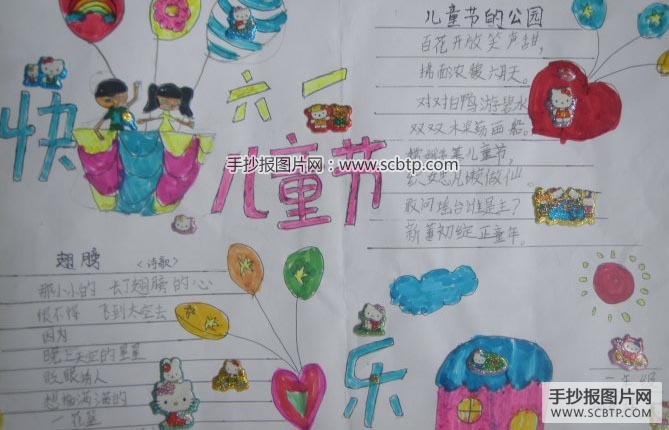 快
六一
儿童节
乐
儿童节的公园
百花开放笑声甜,
面浓馥六月天。
对对白鸭游碧水
双双木桨荡画船。
儿童节,
做仙。
敢问瑶台谁是主?
新蕾初绽正童年。
翅膀 《诗歌》
那小小的 长了翅膀的心
恨不得 飞到太空去
因为
晚上天空的星星
眨眼诱人
想摘满满的
一花篮
手抄报图片网:www.scbtp.com
手抄报图片网
WWW.SCBTP.COM